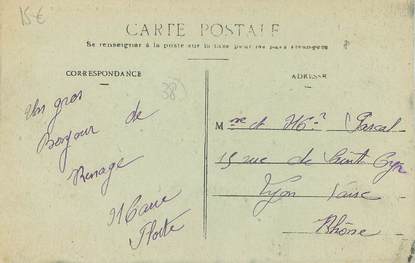 15€
CARTE POSTALE
Se renseigner à la poste sur la taxe pour les pays étrangers
CORRESPONDANCE
ADRESSE
38
Un gros
Bonjour de
Renage
Marie
M me et Mr Pascal
15 rue de Saint Cyr
Lyon Vaise
Rhône